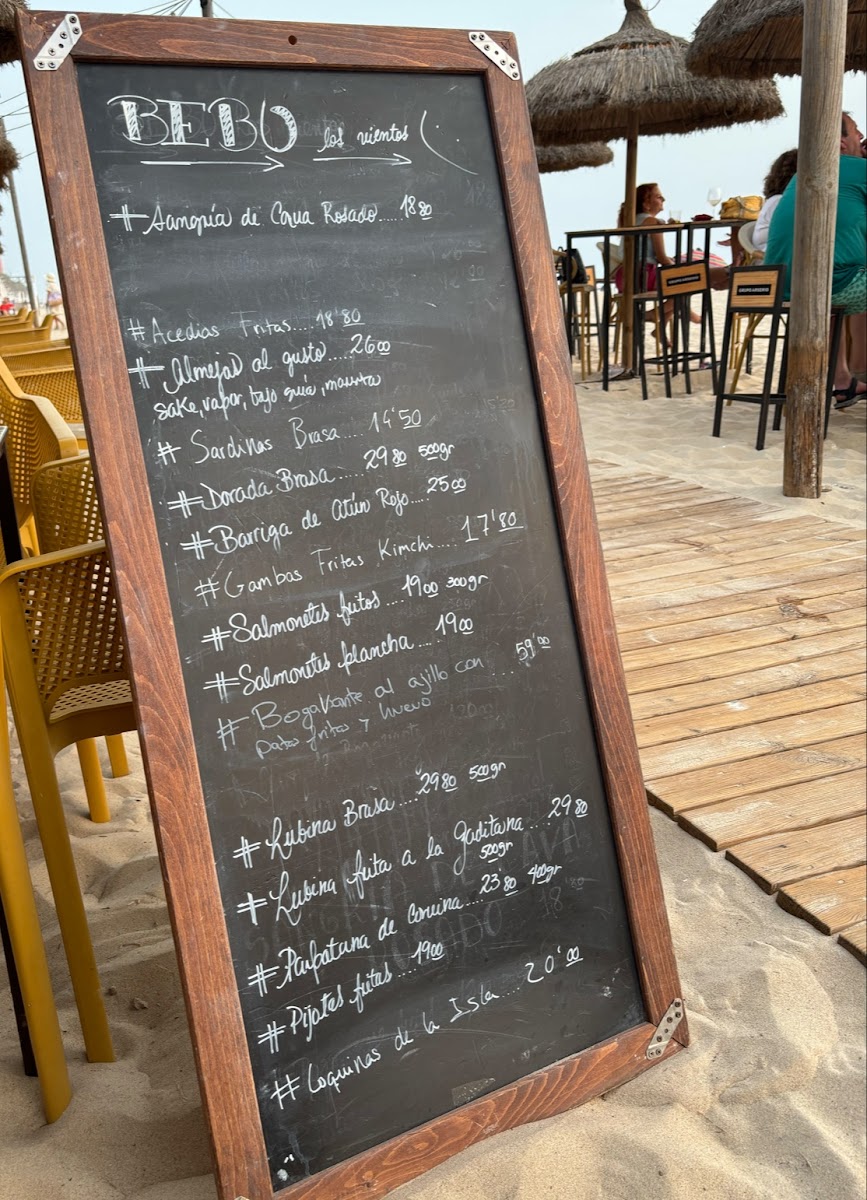 BEBO los vientos
# Sangría de Cava Rosado..... 18'80
# Acedias Fritas.... 18'80
# Almejas al gusto .....26'00
sake, vapor, bajo guía,
# Sardinas Brasa.... 14'50
# Dorada Brasa ..... 29'80 500gr
# Barriga de Atún Rojo.... 25'00
# Gambas Fritas Kimchi.... 17'80
# Salmonetes fritos .... 19'00 300gr
# Salmonetes plancha .... 19'00
# Bogavante al ajillo con .... 59'00
patas fritas y huevo
# Lubina Brasa .... 29'80 500gr
# Lubina frita a la gaditana .... 29'80
500gr
# Parpatana de corvina.... 23'80 400gr
# Pijotas fritas .... 19'00
# Coquinas de la Isla.... 20'00